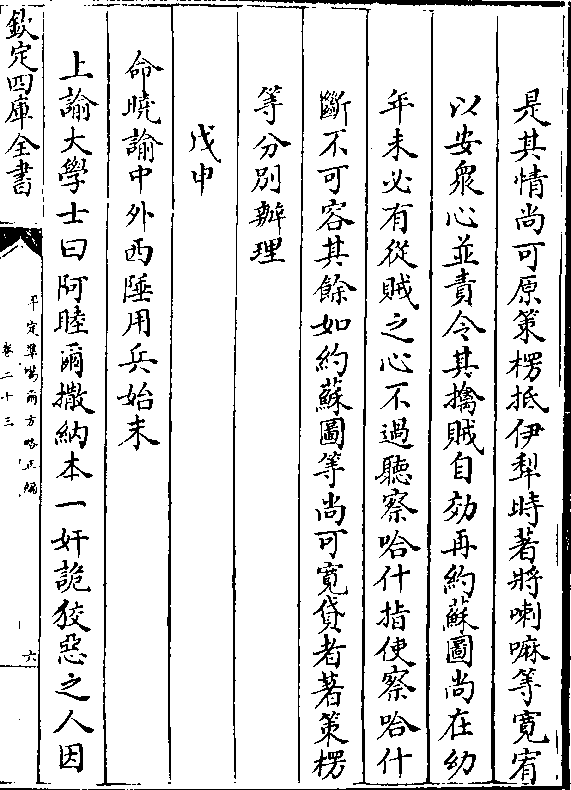 是其情尚可原策楞抵伊犁時著將喇嘛等寬宥
以安衆心並責令其擒賊自効再約蘇圖尚在幼
年未必有從賊之心不過聽察哈什指使察哈什
斷不可容其餘如約蘇圖等尚可寛貸者著策楞
等分別辦理
戊申
命曉諭中外西陲用兵始末
上諭大學士曰阿睦爾撒納本一奸詭狡惡之人因
欽定四庫全書
平定準噶爾方略正編
卷二十三
六